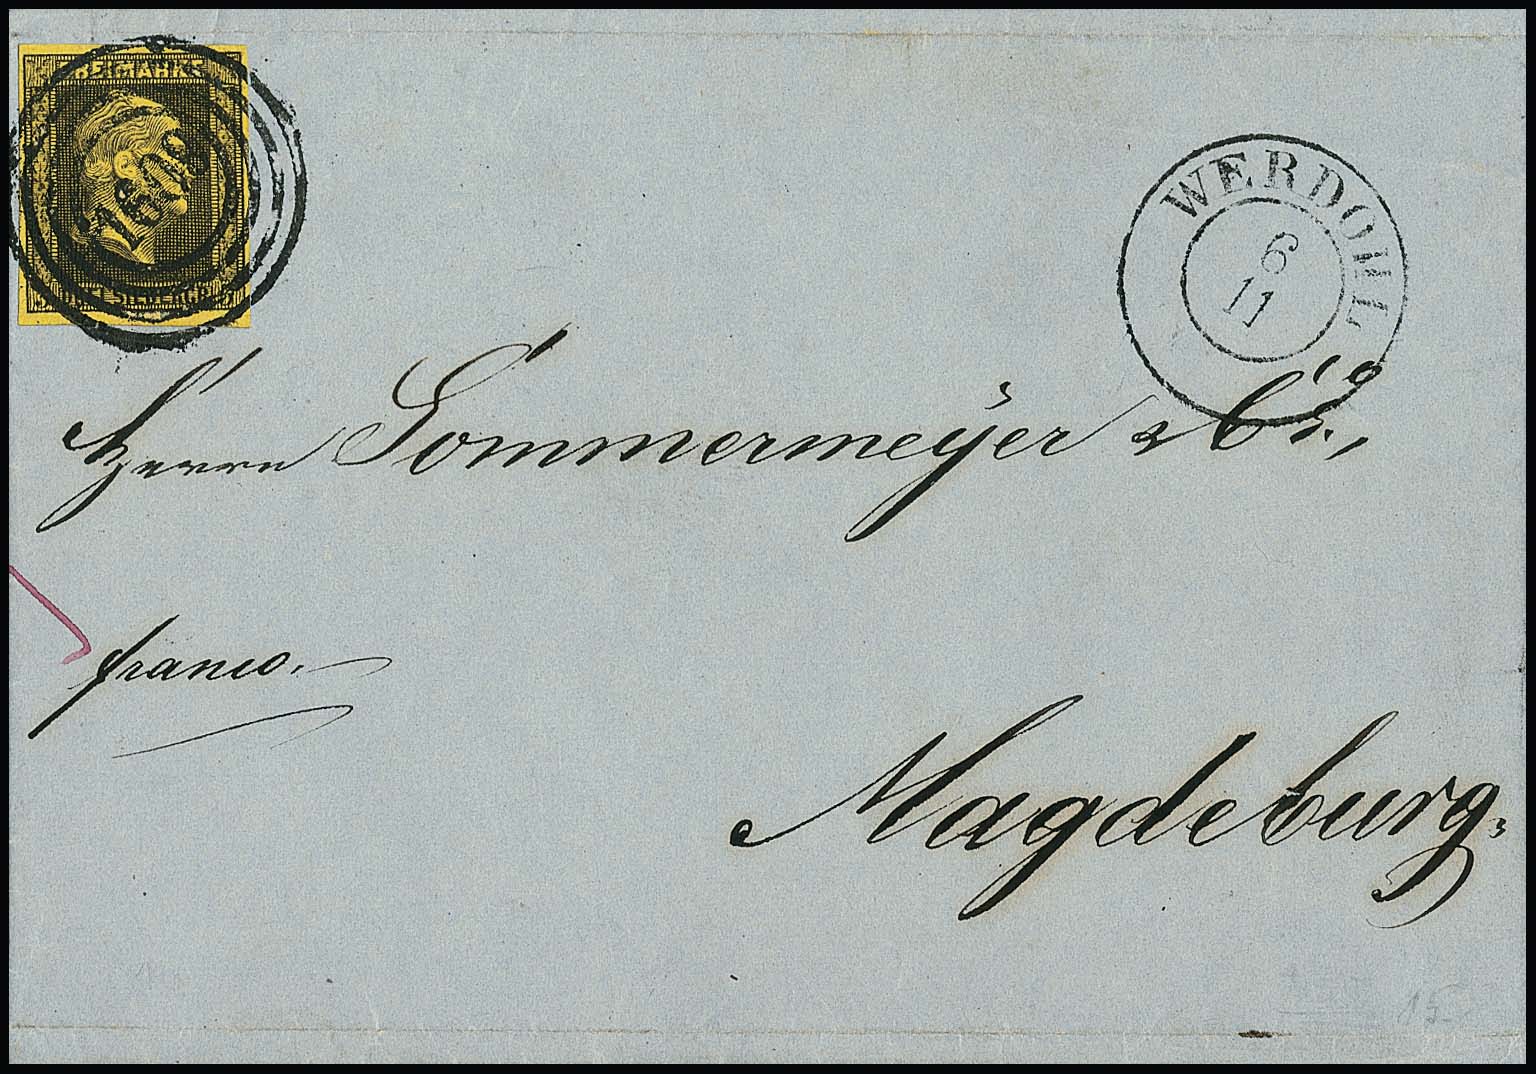 FREIMARKE
DREI SILBERGR.
WERDOHL
6
11
Herrn Sommermeyer & Co,
franco.
Magdeburg.
15